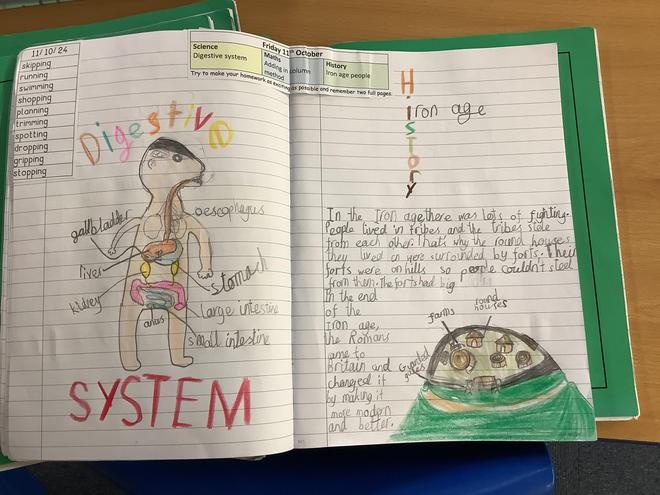 11/10/24
skipping
running
swimming
shopping
planning
trimming
spotting
dropping
gripping
stopping
Friday 11th October
Science
Digestive system
Maths
Adding in column
method
History
Iron age people
Try to make your homework as exciting as possible and remember two full pages.
Digestive
oesophagus
gallbladder
liver
stomach
kidney
large intestine
anus
small intestine
SYSTEM
History
Iron age
In the Iron age there was lots of fighting.
People lived in tribes and the tribes stole
from each other. Thats why the round houses
they lived on were surrounded by forts. Their
forts were on hills so people couldn't steel
from them. The forts had big
In the end
of the
Iron age,
the Romans
came to
Britain and
changed it
by making it
more modern
and better.
farms
round
houses
gates